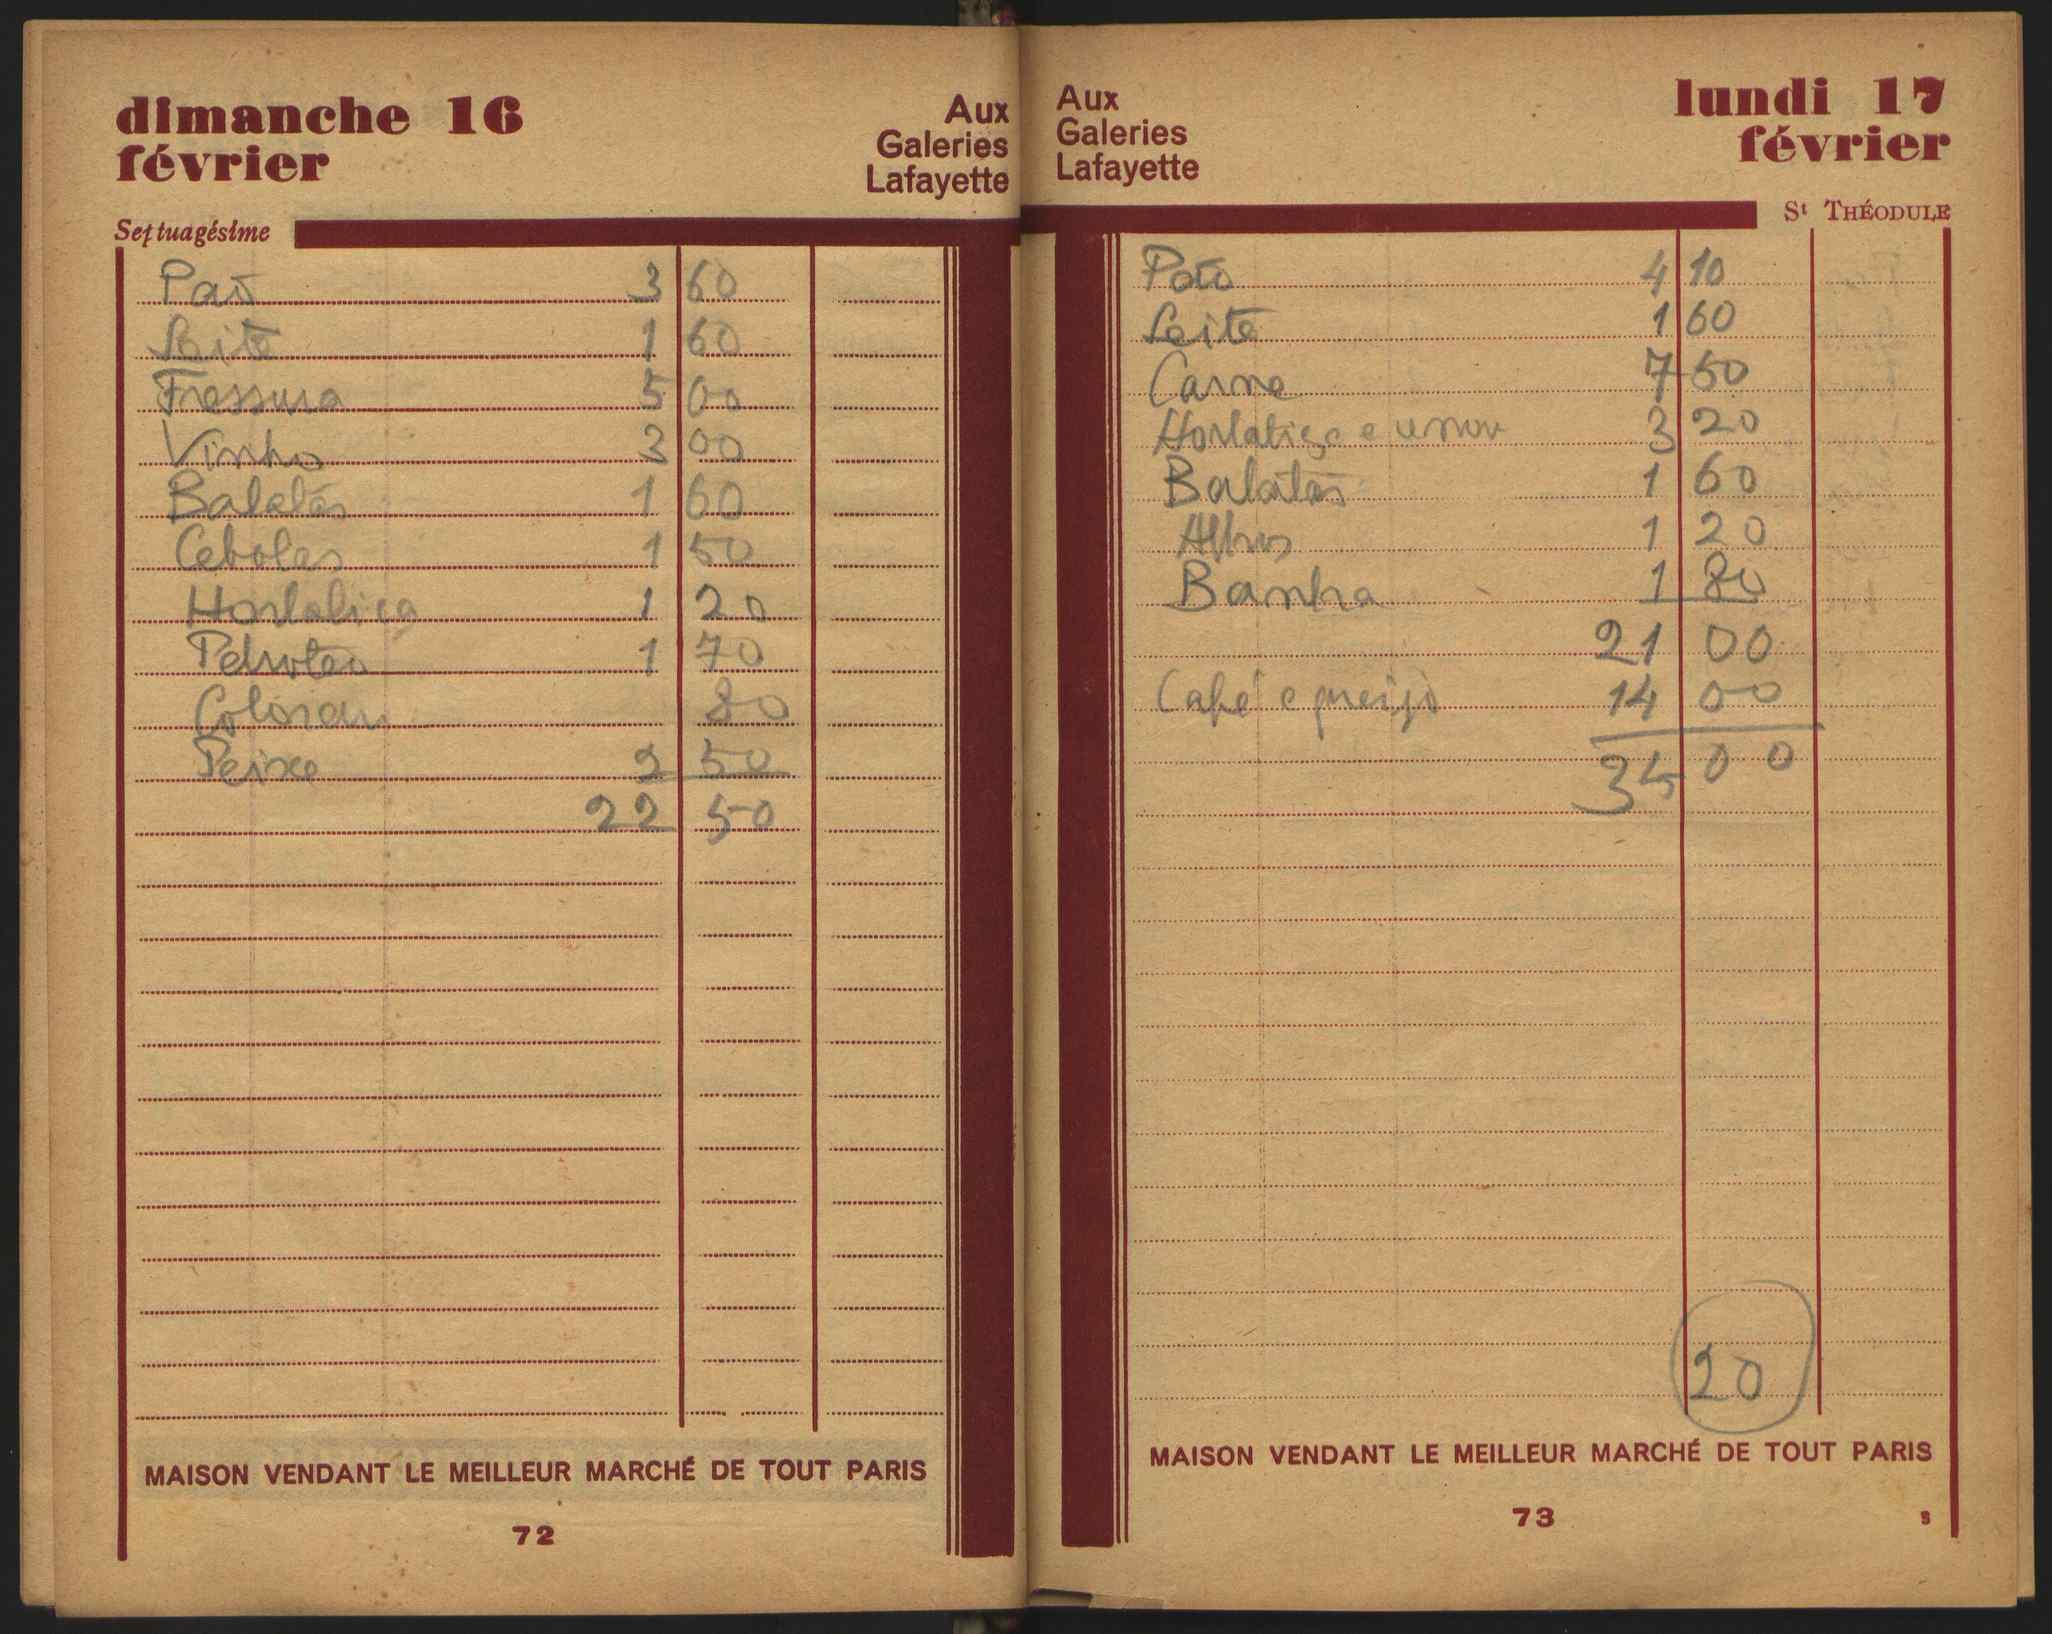 dimanche 16
février
Aux
Galeries
Lafayette
Septuagésime
Pão 3 60
Leite 1 60
Fressura 5 00
Vinho 3 00
Batatas 1 60
Cebolas 1 50
Hortaliça 1 20
Petroleo 1 70
Colorau 80
Peixe 2 50
22 50
MAISON VENDANT LE MEILLEUR MARCHÉ DE TOUT PARIS
72
Aux
Galeries
Lafayette
lundi 17
février
St THÉODULE
Pão 4 10
Leite 1 60
Carne 7 50
Hortaliça e 3 20
Batatas 1 60
1 20
Banha 1 80
21 00
Café e queijo 14 00
35 00
20
MAISON VENDANT LE MEILLEUR MARCHÉ DE TOUT PARIS
73